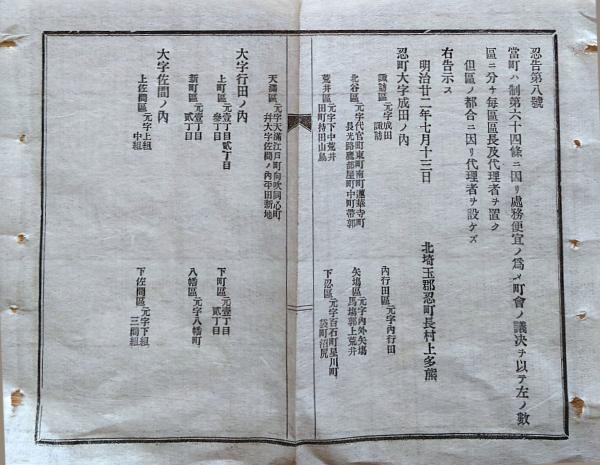 忍告第八號
當町ハ制第六十四條ニ因リ處務便宜ノ爲メ町會ノ議決ヲ以テ左ノ數
區ニ分チ毎區區長及代理者ヲ置ク
但區ノ都合ニ因リ代理者ヲ設ケズ
右告示ス
明治廿二年七月十三日
北埼玉郡忍町長村上多熊
忍町大字成田ノ內
諏訪區 元字成田 諏訪
內行田區 元字內行田
北谷區 元字代官町東町南町蓮華寺町 長光路鷹部屋町中町帶郭
矢塲區 元字內外矢塲 馬塲郭上荒井
荒井區 元字下中荒井 田町持田山島
下忍區 元字百石町星川町 袋町沼尻
天滿區 元字天滿江戶町向吹詞心町 幷大字佐間ノ內平田新地
大字行田ノ內
上町區 元壹丁目貳丁目 參丁目
下町區 元壹丁目 貳丁目
新町區 元壹丁目 貳丁目
八幡區 元字八幡町
大字佐間ノ內
上佐間區 元字上組 中組
下佐間區 元字下組 三間組